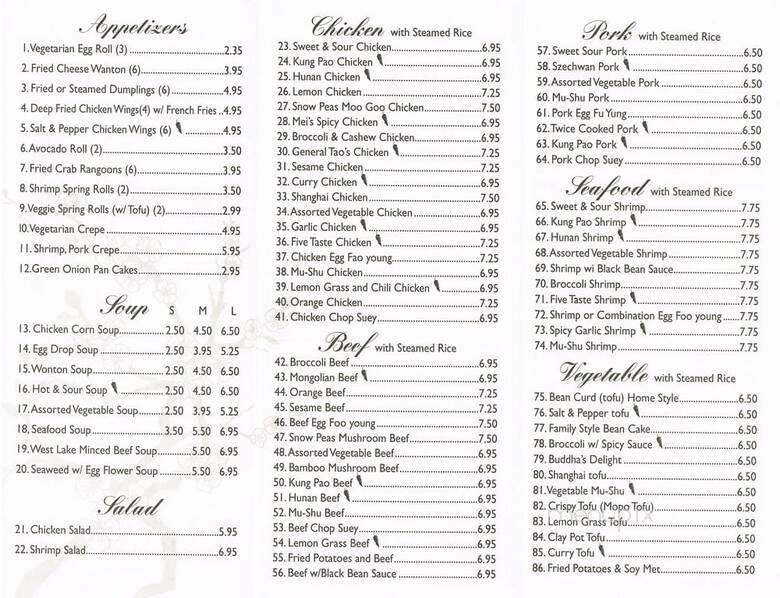 Appetizers
1.Vegetarian Egg Roll (3) 2.35
2. Fried Cheese Wanton (6) 3.95
3. Fried or Steamed Dumplings (6) 4.95
4. Deep Fried Chicken Wings(4) w/ French Fries ..4.95
5. Salt & Pepper Chicken Wings (6) 4.95
6.Avocado Roll (2) 3.50
7. Fried Crab Rangoons (6) 3.95
8. Shrimp Spring Rolls (2) 3.50
9.Veggie Spring Rolls (w/ Tofu) (2) 2.99
10.Vegetarian Crepe 4.95
11. Shrimp, Pork Crepe 5.95
12.Green Onion Pan Cakes 2.95
Soup S M L
13. Chicken Corn Soup 2.50 4.50 6.50
14. Egg Drop Soup 2.50 3.95 5.25
15.Wonton Soup 2.50 4.50 6.50
16. Hot & Sour Soup 2.50 4.50 6.50
17.Assorted Vegetable Soup 2.50 3.95 5.25
18. Seafood Soup 3.50 5.50 6.95
19.West Lake Minced Beef Soup 5.50 6.95
20. Seaweed w/ Egg Flower Soup 5.50 6.95
Salad
21. Chicken Salad 5.95
22. Shrimp Salad 6.95
Chicken with Steamed Rice
23. Sweet & Sour Chicken 6.95
24. Kung Pao Chicken 6.95
25. Hunan Chicken 6.95
26. Lemon Chicken 7.25
27. Snow Peas Moo Goo Chicken 7.50
28. Mei's Spicy Chicken 6.95
29. Broccoli & Cashew Chicken 6.95
30. General Tao's Chicken 7.25
31. Sesame Chicken 7.25
32. Curry Chicken 6.95
33. Shanghai Chicken 7.50
34.Assorted Vegetable Chicken 6.95
35. Garlic Chicken 6.95
36. Five Taste Chicken 7.25
37. Chicken Egg Fao young 7.25
38. Mu-Shu Chicken 6.95
39. Lemon Grass and Chili Chicken 6.95
40. Orange Chicken 7.25
41. Chicken Chop Suey 6.95
Beef with Steamed Rice
42. Broccoli Beef 6.95
43. Mongolian Beef 6.95
44. Orange Beef 7.25
45. Sesame Beef 7.25
46. Beef Egg Foo young 7.50
47. Snow Peas Mushroom Beef 7.50
48. Assorted Vegetable Beef 6.95
49. Bamboo Mushroom Beef 6.95
50. Kung Pao Beef 6.95
51. Hunan Beef 6.95
52. Mu-Shu Beef 6.95
53. Beef Chop Suey 6.95
54. Lemon Grass Beef 6.95
55. Fried Potatoes and Beef 6.95
56. Beef w/Black Bean Sauce 6.95
Pork with Steamed Rice
57. Sweet Sour Pork 6.50
58. Szechwan Pork 6.50
59. Assorted Vegetable Pork 6.50
60. Mu-Shu Pork 6.50
61. Pork Egg Fu Yung 6.50
62. Twice Cooked Pork 6.50
63. Kung Pao Pork 6.50
64. Pork Chop Suey 6.50
Seafood with Steamed Rice
65. Sweet & Sour Shrimp 7.75
66. Kung Pao Shrimp 7.75
67. Hunan Shrimp 7.75
68. Assorted Vegetable Shrimp 7.75
69. Shrimp wi Black Bean Sauce 7.75
70. Broccoli Shrimp 7.75
71. Five Taste Shrimp 7.75
72. Shrimp or Combination Egg Foo young 7.75
73. Spicy Garlic Shrimp 7.75
74. Mu-Shu Shrimp 7.75
Vegetable with Steamed Rice
75. Bean Curd (tofu) Home Style 6.50
76. Salt & Pepper tofu 6.50
77. Family Style Bean Cake 6.50
78. Broccoli w/ Spicy Sauce 6.50
79. Buddha's Delight 6.50
80. Shanghai tofu 6.50
81.Vegetable Mu-Shu 6.50
82. Crispy Tofu (Mopo Tofu) 6.50
83. Lemon Grass Tofu 6.50
84. Clay Pot Tofu 6.50
85. Curry Tofu 6.50
86. Fried Potatoes & Soy Met 6.50